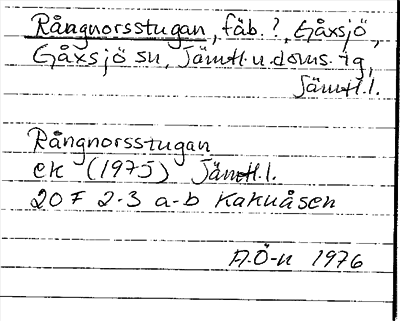 Rångnorsstugan, fäb.?, Gåxsjö,
Gåxsjö sn, Jämtl. u. doms. tg,
Jämtl. l.
Rångnorsstugan
ek (1975) Jämtl. l.
20 F 2-3 a-b Kakuåsen
A.Ö-n 1976